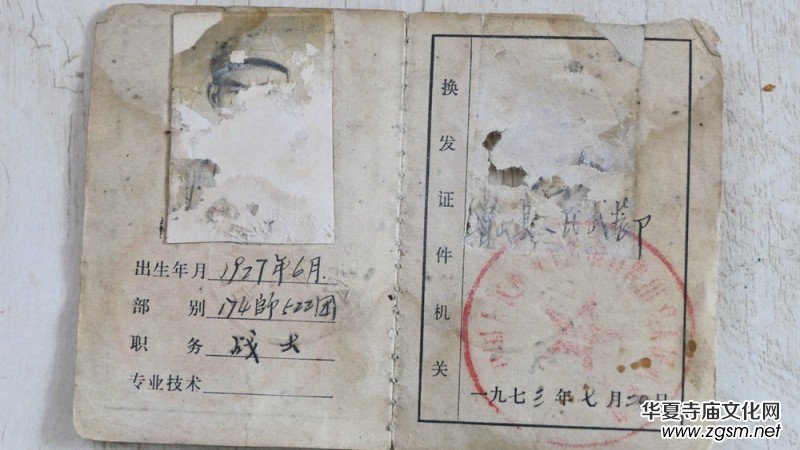 出生年月 1927年6月.
部 别 174師522团
职 务 战士
专业技术
换发证件机关
县人民武装部
一九七三年七月二日
华夏寺庙文化网
www.zgsm.net